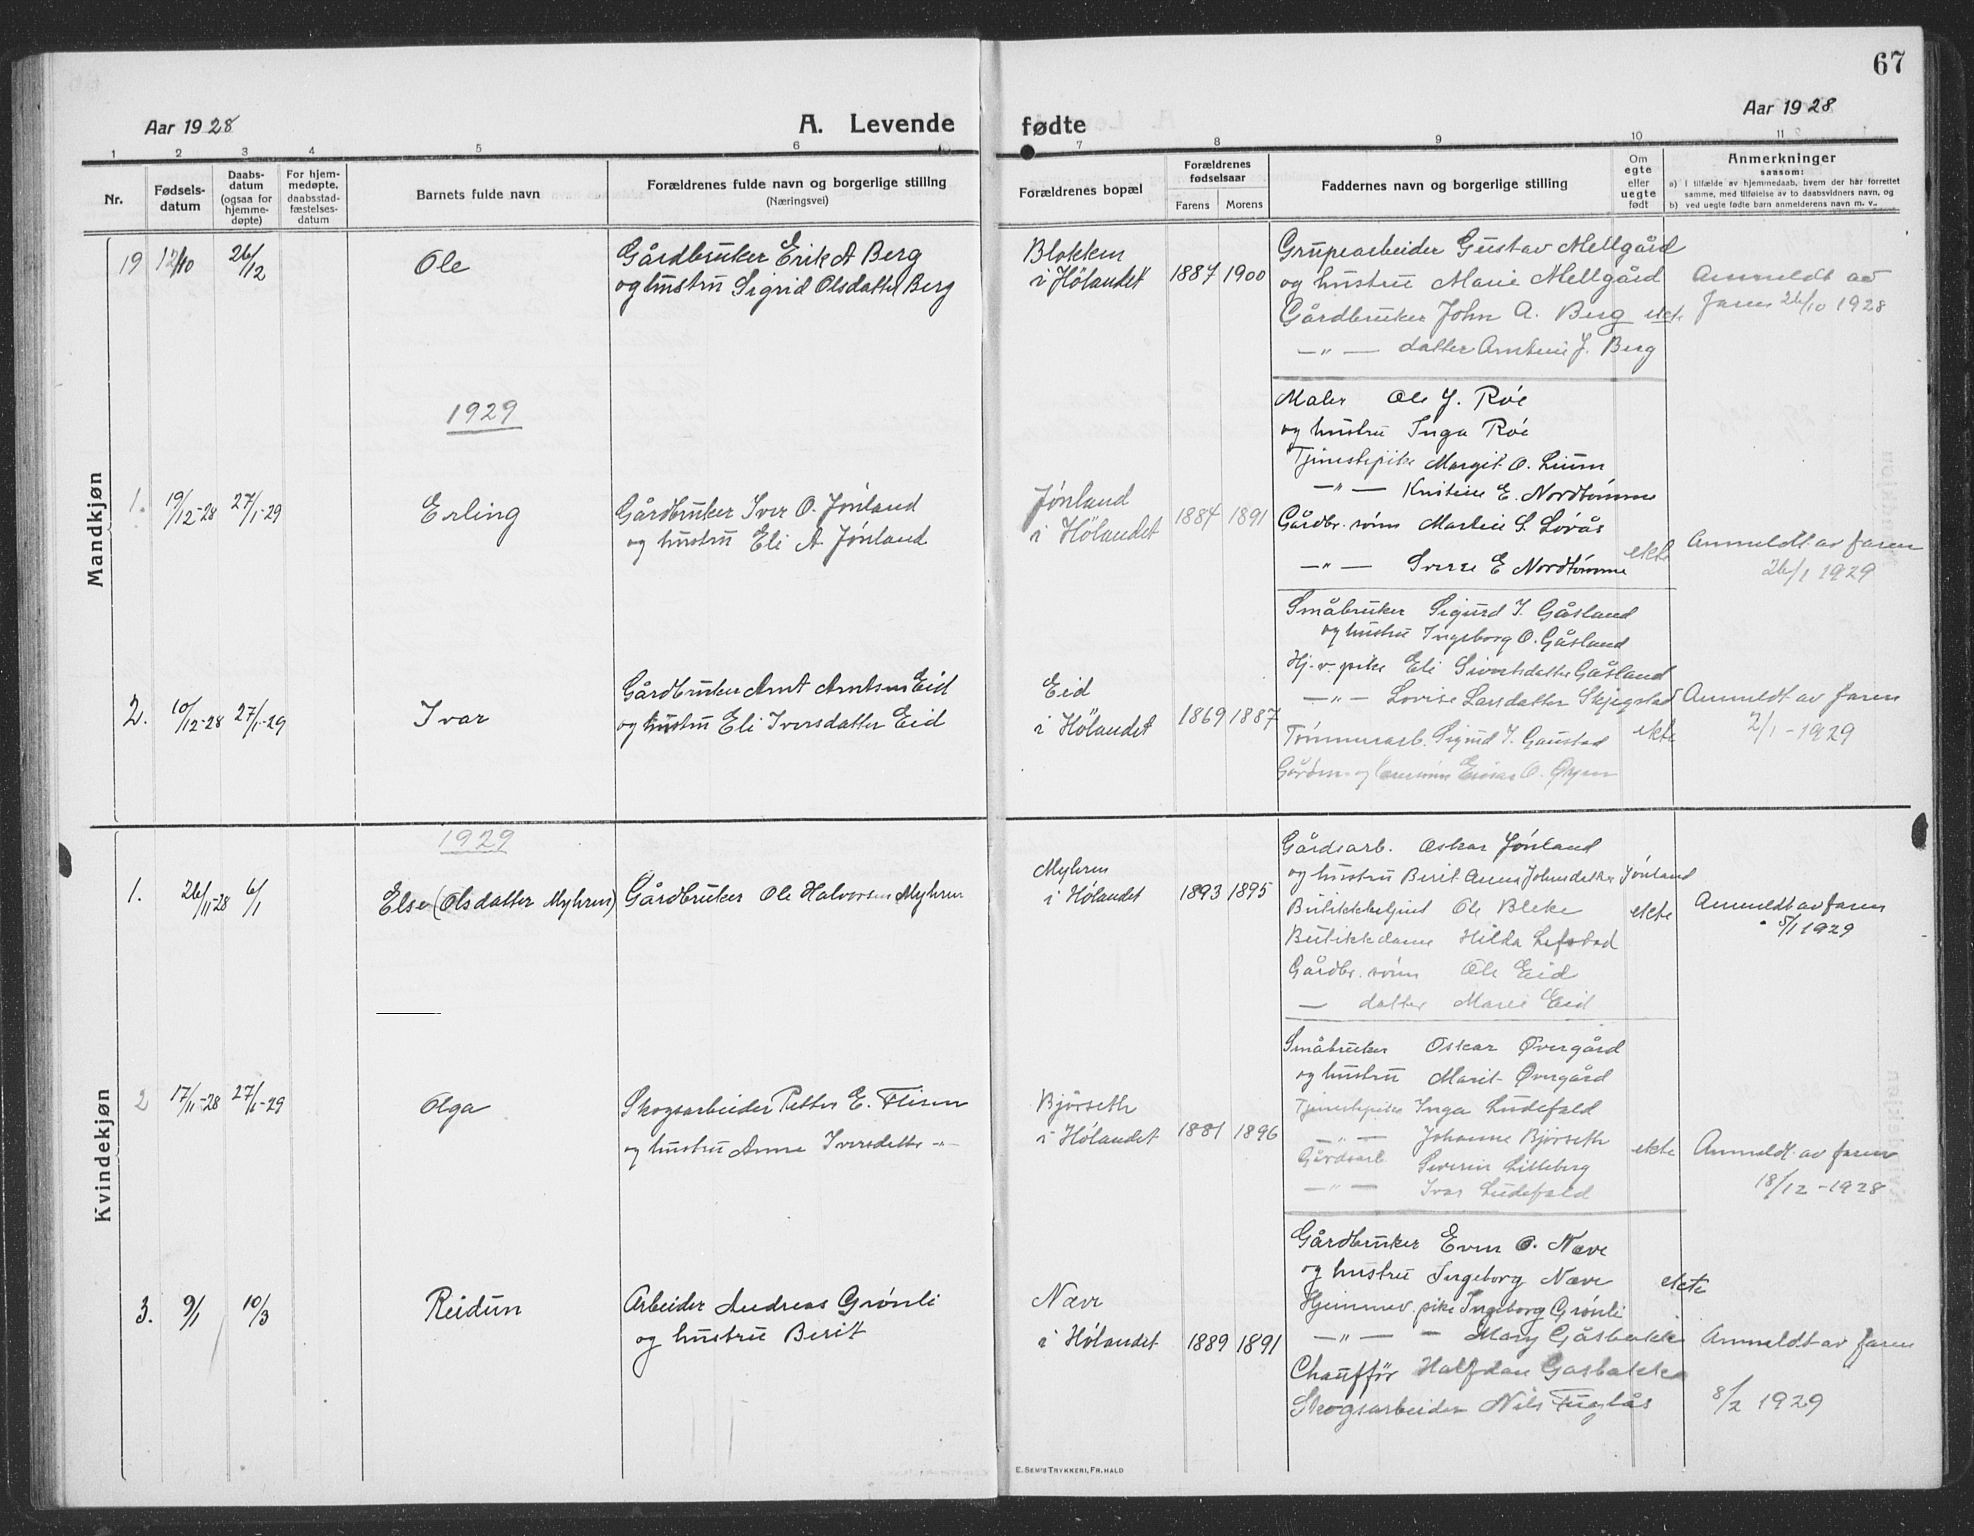 67
Aar 1928
A. Levende
fødte
Aar 1928
1 2 3 4 5 6 7 8 9 10 11
Nr.
Fødsels-
datum
Daabs-
datum
(ogsaa for
hjemme-
døpte)
For hjem-
medøpte.
daabsstad-
fæstelses-
datum
Barnets fulde navn
Forældrenes fulde navn og borgerlige stilling
(Næringsvei)
Forældrenes bopæl
Forældrenes
fødselsaar
Farens
Morens
Faddernes navn og borgerlige stilling
Om
egte
eller
uegte
født
Anmerkninger
saasom:
a) I tilfælde av hjemmedaab, hvem der har forrettet
samme, med tilføielse av to daabsvidners navn, og
b) ved uegte fødte barn anmelderens navn m. v.
Mandkjøn
19 12/10 26/12 Ole
Gårdbruker Erik A Berg
og hustru Sigrid Olsdatter Berg
Blokken
i Hölandet
1887 1900
Grupearbeider Gustav Mellgård
og hustru Marie Mellgård
Gårdbruker John A. Berg
—„— datter J. Berg
ekte
Anmeldt av
faren 26/10 1928
1929
1. 19/12-28 27/1-29 Erling
Gårdbruker Iver O. Jønland
og hustru Eli A Jønland
Jønland
i Hölandet
1884 1891
Maler Ole J. Røe
og hustru Inga Røe
Tjenestepike Margit O. Lium
—„— Kristine E. Nordtømme
Gårdbr. sønn Martin S. Løvås
—„— Sverre E Nordtømme
ekte
Anmeldt av faren
26/1 1929
2. 10/12-28 27/1-29 Ivar
Gårdbruker Arnt Arntsen Eid
og hustru Eli Iversdatter Eid
Eid
i Hölandet
1869 1887
Småbruker Sigurd I. Gåsland
og hustru Ingeborg O. Gåsland
Hj.v. pike Eli Sivertsdatter Gåsland
—„— Lovise Larsdatter Skjegstad
Tømmerarb. Sigurd I. Gaustad
O.
ekte
Anmeldt av faren
2/1-1929
Kvindekjøn
1929
1. 26/11-28 6/1 Else (Olsdatter Myhren)
Gårdbruker Ole Halvorsen Myhren
Myhren
i Hölandet
1893 1895
Gårdsarb. Oskar Jønland
og hustru Berit Anna Johnsdatter Jønland
Butikkbetjent Ole Bleke
Butikkdame Hilda Lefstad
Gårdbr. sønn Ole Eid
— datter Marie Eid
ekte
Anmeldt av faren
5/1 1929
2 17/11-28 27/1-29 Olga
Skogsarbeider Petter E. Flisen
og hustru Anne Iversdatter —„—
Bjørseth
i Hölandet
1881 1896
Småbruker Oskar Øvergård
og hustru Marit Øvergård
Tjenestepike Inga Ludefald
—„— Johanne Bjørseth
Gårdsarb Severin Litleberg
—„— Ivar Ludefald
ekte
Anmeldt av faren
18/12-1928
3. 9/1 10/3 Reidun
Arbeider Andreas Grønli
og hustru Berit
Næve
i Hölandet
1889 1891
Gårdbruker Even O. Næve
og hustru Ingeborg Næve
Hjemmev. pike Ingeborg Grønli
—„— — Mary Gåsbakke
Chauffør Halfdan Gasbakke
Skogsarbeider Nils Fuglås
ekte
Anmeldt av faren
8/2 1929
E. SEM'S TRYKKERI, FR.HALD